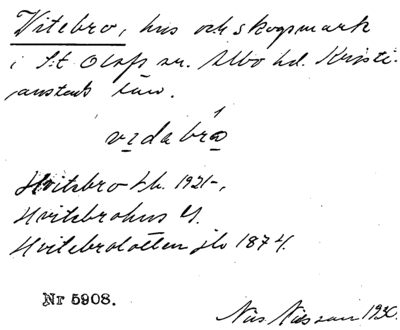 Vitebro, hus och skogsmark
i S:t Olofs sn. Albo hd. Kristi-
anstads län.
vidabró
Hvitsbro
Hvitsbrohus
Hvitebrolotten jb 1874.
Nr 5908.
Nils Nilsson 1930.